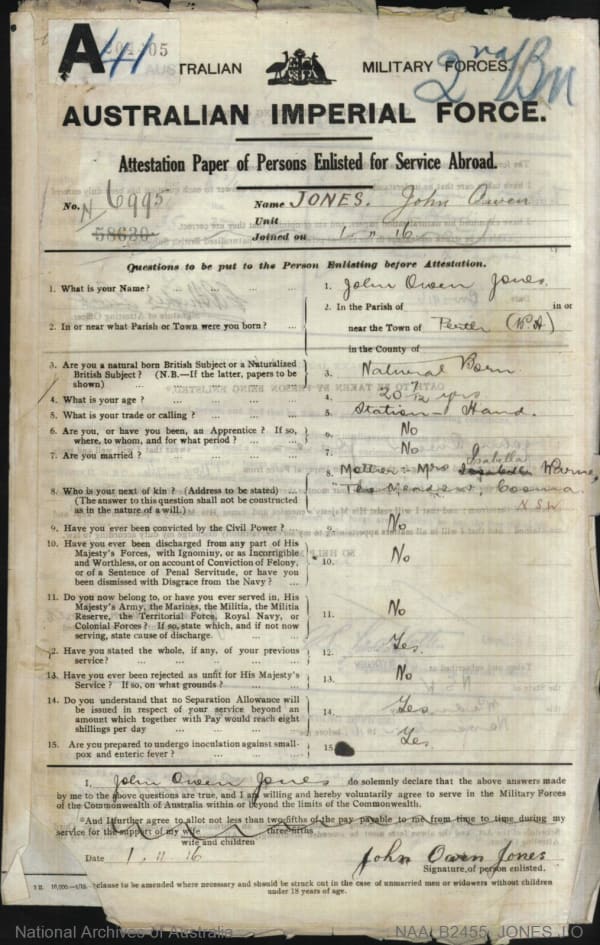 A 41
AUSTRALIAN MILITARY FORCES. 2nd/Bn
AUSTRALIAN IMPERIAL FORCE.
Attestation Paper of Persons Enlisted for Service Abroad.
No. N 6995 Name JONES. John Owen
58630 Unit
Joined on 1 11 16
Questions to be put to the Person Enlisting before Attestation.
1. What is your Name? ... 1. John Owen Jones.
2. In or near what Parish or Town were you born? ... 2. In the Parish of in or
near the Town of Perth (W.A)
in the County of
3. Are you a natural born British Subject or a Naturalized
British Subject? (N.B.—If the latter, papers to be
shown) ... 3. Natural Born
4. What is your age? ... 4. 20 7/12 yrs
5. What is your trade or calling? ... 5. Station-Hand.
6. Are you, or have you been, an Apprentice? If so,
where, to whom, and for what period? ... 6. No
7. Are you married? ... 7. No
8. Who is your next of kin? (Address to be stated)
(The answer to this question shall not be constructed
as in the nature of a will.) 8. Mother:- Mrs Isabella
Cooma.
N.S.W
9. Have you ever been convicted by the Civil Power? ... 9. No
10. Have you ever been discharged from any part of His
Majesty's Forces, with Ignominy, or as Incorrigible
and Worthless, or on account of Conviction of Felony,
or of a Sentence of Penal Servitude, or have you
been dismissed with Disgrace from the Navy? ... 10. No
11. Do you now belong to, or have you ever served in, His
Majesty's Army, the Marines, the Militia, the Militia
Reserve, the Territorial Force, Royal Navy, or
Colonial Forces? If so, state which, and if not now
serving, state cause of discharge. ... 11. No
12. Have you stated the whole, if any, of your previous
service? ... 12. Yes.
13. Have you ever been rejected as unfit for His Majesty's
Service? If so, on what grounds? ... 13. No
14. Do you understand that no Separation Allowance will
be issued in respect of your service beyond an
amount which together with Pay would reach eight
shillings per day ... 14. Yes
15. Are you prepared to undergo inoculation against small-
pox and enteric fever? ... 15. Yes
I, John Owen Jones do solemnly declare that the above answers made
by me to the above questions are true, and I am willing and hereby voluntarily agree to serve in the Military Forces
of the Commonwealth of Australia within or beyond the limits of the Commonwealth.
*And I further agree to allot not less than two-fifths of the pay payable to me from time to time during my
three-fifths
service for the support of my wife
wife and children
Date 1. 11. 16 John Owen Jones
Signature of person enlisted.
clause to be amended where necessary and should be struck out in the case of unmarried men or widowers without children
under 18 years of age.
National Archives of Australia NAA: B2455, JONES J O